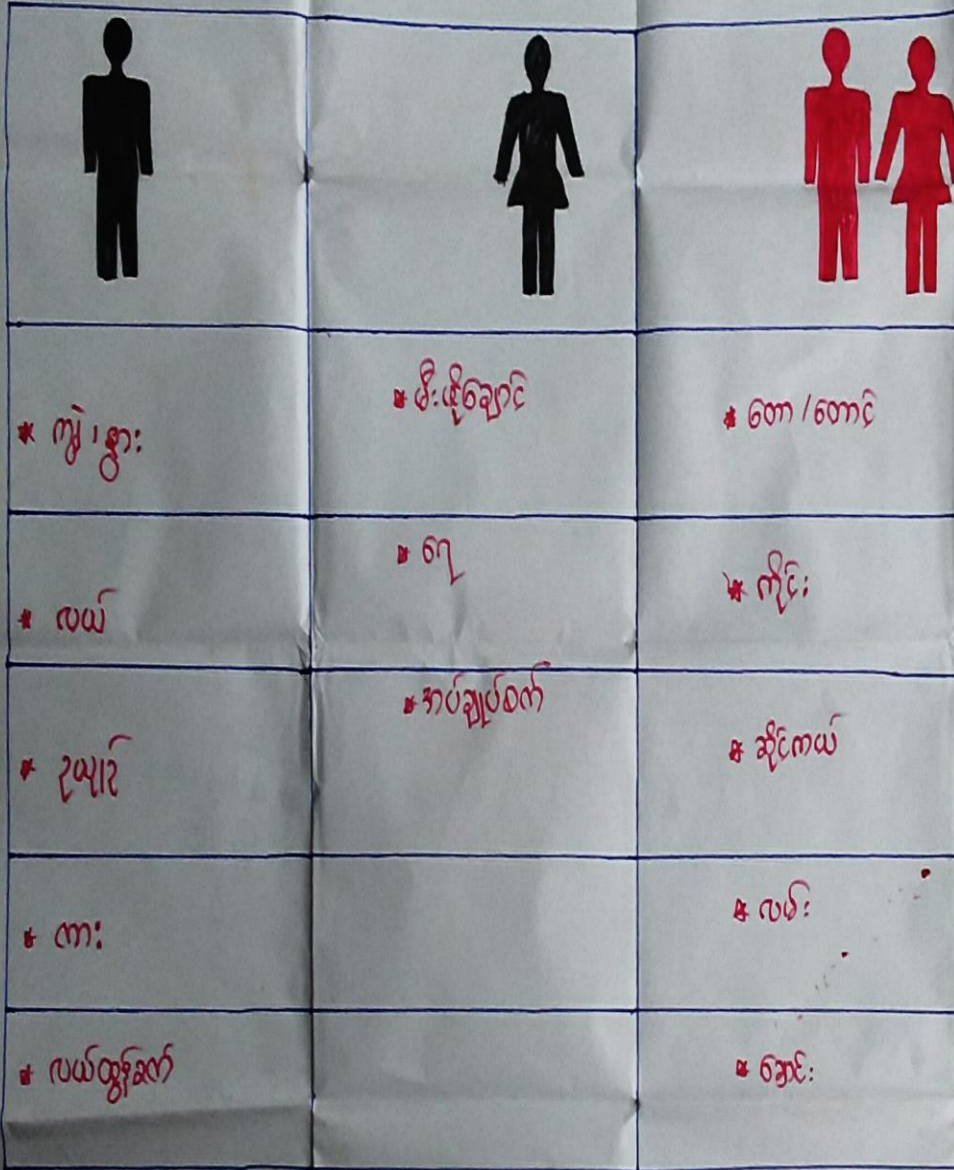 * ကျွဲ၊ နွား
* မီးဖိုချောင်
* တော / တောင်
* လယ်
* ရေ
* ကိုင်း
* ဥယျာဉ်
* အပ်ချုပ်စက်
* ဆိုင်ကယ်
* ကား
* လမ်း
* လယ်ထွန်စက်
* ချောင်း